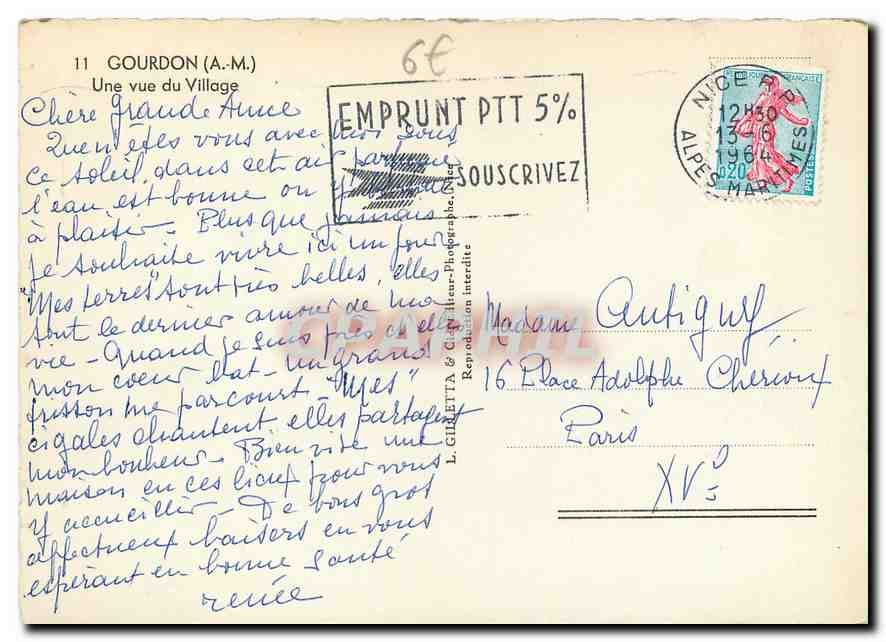 11 GOURDON (A.-M.)
Une vue du Village
6€
EMPRUNT PTT 5%
SOUSCRIVEZ
NICE R.P.
12H30
13-6
1964
ALPES-MARITIMES
FRANÇAISE
0,20
POSTES
Chère grande Anne
Que n'êtes vous avec moi sous
ce soleil, dans cet air parfumé
l'eau est bonne on y
à plaisir. Plus que jamais
je souhaite vivre ici un jour
"Mes terres" sont très belles, elles
sont le dernier amour de ma
vie - Quand je suis près d'elles
mon cœur bat - un grand
frisson me parcourt - "Mes"
cigales chantent elles partagent
mon bonheur. Bien vite une
maison en ces lieux pour vous
y accueillir - De bons gros
affectueux baisers en vous
espérant en bonne santé
renée
L. GILLETTA & Cie, Editeur-Photographe, Nice
Reproduction interdite
Madame Antigny
16 Place Adolphe Chérioux
Paris
XVe
CPAPHIL